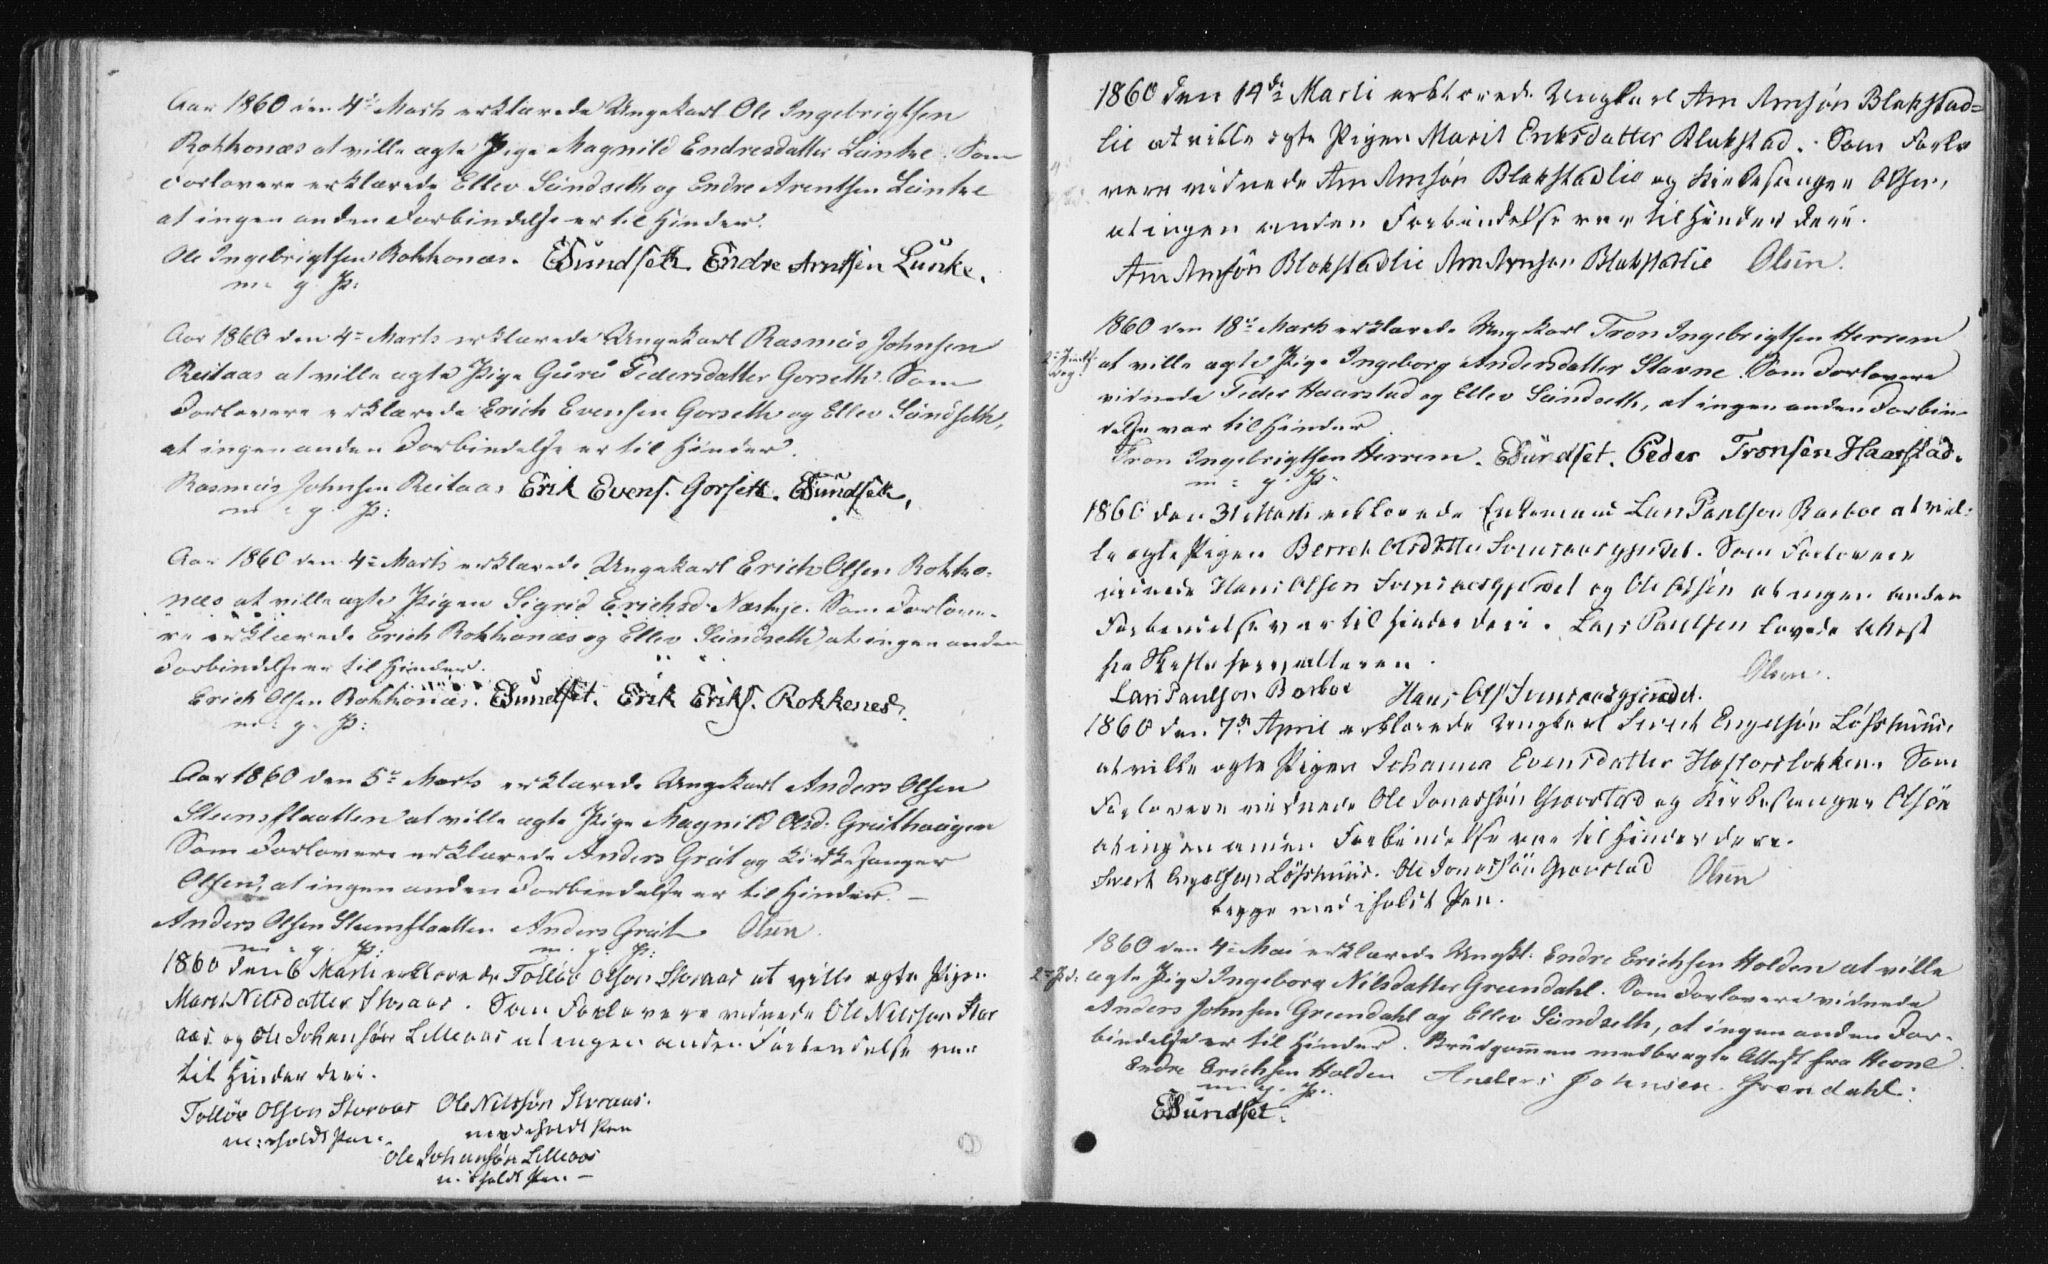 Aar 1860 den 4de Marts erklærede Ungekarl Ole Ingebrigtsen
Rokkonæs at ville ægte Pige Magnild Endresdatter Lünke. Som
Forlovere erklærede Ellev Sündseth og Endre Arentsen Lünke
at ingen anden Forbindelse er til Hinder.
Ole Ingebrigtsen Rokkonæs. ESundseth. Endre Arntsen Lunke.
m. g. P:
Aar 1860 den 4de Marts erklærede Ungekarl Rasmus Johnsen
Reitaas at ville ægte Pige Gürü Pedersdatter Gorseth. Som
Forlovere erklærede Erich Evensen Gorseth og Ellev Sündseth,
at ingen anden Forbindelse er til Hinder.
Rasmus Johnsen Reitaas Erik Evens. Gorseth. ESundseth,
m: g. P:
Aar 1860 den 4de Marts erklærede Ungekarl Erich Olsen Rokko-
næs at ville ægte Pigen Sigrid Erichsd. Som Forlove-
re erklærede Erich Rokkonæs og Ellev Sündseth, at ingen anden
Forbindelse er til Hinder.
Erich Olsen Rokkonæs. ESundset. Erik Eriks. Rokkenes.
m: g. P:
Aar 1860 den 5te Marts erklærede Ungekarl Anders Olsen
at ville ægte Pige Magnild Olsd. Gruthaugen
Som Forlovere erklærede Anders Grüt og Kirkesanger
Olsen, at ingen anden Forbindelse er til Hinder. —
Anders Olsen Anders Grüt. Olsen.
m: g. P: m. g. P:
1860 den 6 Marti erklærede Tolløv Olsøn Storaas at ville ægte Pigen
Marit Nilsdatter Storaas. Som Forlovere vidnede Ole Nilssøn Stor
aas og Ole Johansøn Lilleaas at ingen anden Forbindelse var
til Hinder deri.
Tolløv Olsøn Storaas Ole Nilssøn Storaas.
m: iholdt Pen. med iholdt Pen
Ole Johansøn Lilleaas
m. iholdt Pen. —
1860 den 14de Marti erklærede Ungkarl Arn Arnsøn Blakstad=
lie at ville ægte Pigen Marit Eriksdatter Blakstad. Som Forlo
vere vidnede Arn Arnsøn Blakstadlie og Kirkesanger Olsen,
at ingen anden Forbindelse var til Hinder deri.
Arn Arnsøn Blakstadlie Arn Arnsøn Blakstadlie Olsen.
1860 den 18de Marts erklærede Ungekarl Tron Ingebrigtsen Herrem
at ville ægte Pige Ingeborg Andersdatter Stavne. Som Forlovere
vidnede Peder Haarstad og Ellev Sündseth, at ingen anden Forbin-
delse var til Hinder
Tron Ingebrigtsen Herrem. ESündset. Peder Tronsen Haarstad.
m: g. P.
1860 den 31 Marti erklærede Enkemand Lars Paulsøn Barboe at vil-
le ægte Pigen Berret Olsdatter. Som Forlovere
vidnede Hans Olsen og Ole Olsøn at ingen anden
Forbindelse var til Hinder deri. Lars Paulsen lovede Attest
fra Skifteforvalteren.
Olsen.
Lars Paulson Barboe Hans Ols
1860 den 7de April erklærede Ungkarl Sivert Engelsøn
at ville ægte Pigen Johanna Evensdatter. Som
Forlovere vidnede Ole Jonassøn Gravstad og Kirkesanger Olsøn
at ingen anden Forbindelse var til Hinder deri.
Sivert Engelsøn. Ole Jonassøn Gravstad Olsen
begge med iholdt Pen.
1860 den 4de Mai erklærede Ungkl. Endre Erichsen Holden at ville
2den Pd. ægte Pige Ingeborg Nilsdatter Greendahl. Som Forlovere vidnede
Anders Johnsen Greendahl og Ellev Sündseth, at ingen anden For-
bindelse er til Hinder. Brudgommen medbragte Attest fra Hevne.
Endre Erichsen Holden Anders Johnsen Grøndahl.
m. g. P.
ESündset.